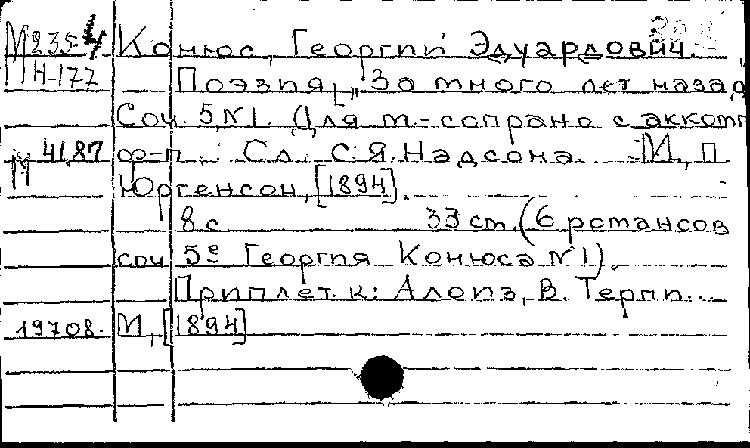 М 235/4 Конюс, Георгий Эдуардович.
Н-177 Поэзия, „За много лет назад
Соч. 5, №1. Для м.-сопрано с акком
М 41.87 ф-п. Сл. С.Я. Надсона. М., П.
Юргенсон, [1894].
8 с 33 ст. (6 романсов
соч. 5е Георгия Конюса №1).
Приплет. к: Алоиз, В. Терпи...
19708. М., [1894]